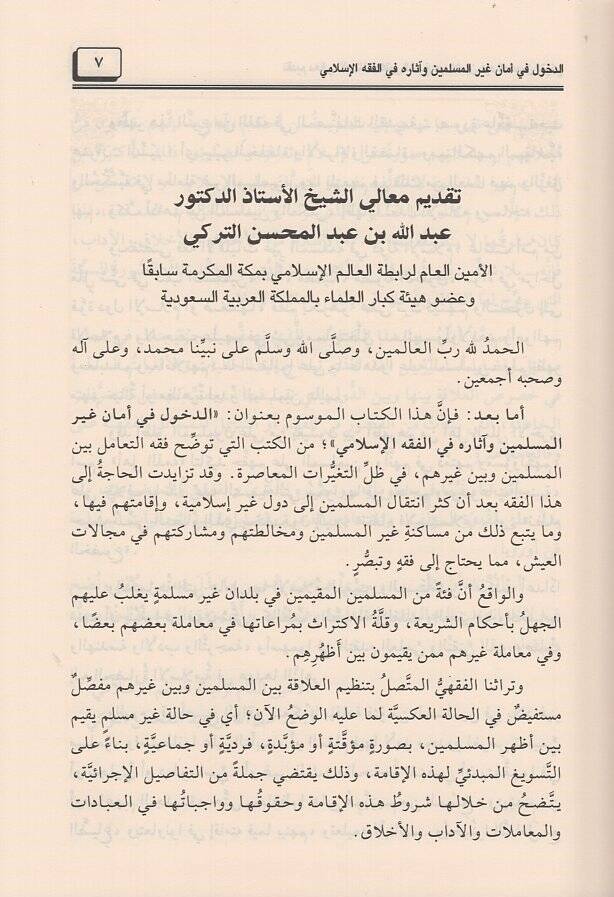 الدخول في أمان غير المسلمين وآثاره في الفقه الإسلامي
٧
تقديم معالي الشيخ الأستاذ الدكتور
عبد الله بن عبد المحسن التركي
الأمين العام لرابطة العالم الإسلامي بمكة المكرمة سابقًا
وعضو هيئة كبار العلماء بالمملكة العربية السعودية
الحمدُ لله ربِّ العالمين، وصلَّى الله وسلَّم على نبيِّنا محمد، وعلى آله
وصحبه أجمعين.
أما بعد: فإنَّ هذا الكتاب الموسوم بعنوان: «الدخول في أمان غير
المسلمين وآثاره في الفقه الإسلامي»؛ من الكتب التي توضِّح فقه التعامل بين
المسلمين وبين غيرهم، في ظلِّ التغيُّرات المعاصرة. وقد تزايدت الحاجةُ إلى
هذا الفقه بعد أن كثر انتقال المسلمين إلى دول غير إسلامية، وإقامتهم فيها،
وما يتبع ذلك من مساكنةِ غير المسلمين ومخالطتهم ومشاركتهم في مجالات
العيش، مما يحتاج إلى فقهٍ وتبصُّرٍ.
والواقعُ أنَّ فئةً من المسلمين المقيمين في بلدان غير مسلمةٍ يغلبُ عليهم
الجهلُ بأحكام الشريعة، وقلَّةُ الاكتراث بمُراعاتها في معاملة بعضهم بعضًا،
وفي معاملة غيرهم ممن يقيمون بين أَظهُرِهِم.
وتراثنا الفقهيُّ المتَّصلُ بتنظيم العلاقة بين المسلمين وبين غيرهم مفصَّلٌ
مستفيضٌ في الحالة العكسيَّة لما عليه الوضعُ الآن؛ أي في حالة غير مسلمٍ يقيم
بين أظهر المسلمين، بصورةٍ مؤقَّتةٍ أو مؤبَّدة، فرديَّةٍ أو جماعيَّةٍ، بناءً على
التَّسويغ المبدئيِّ لهذه الإقامة، وذلك يقتضي جملةً من التفاصيل الإجرائيَّة،
يتَّضحُ من خلالها شروطُ هذه الإقامة وحقوقُها وواجباتُها في العبادات
والمعاملات والآداب والأخلاق.